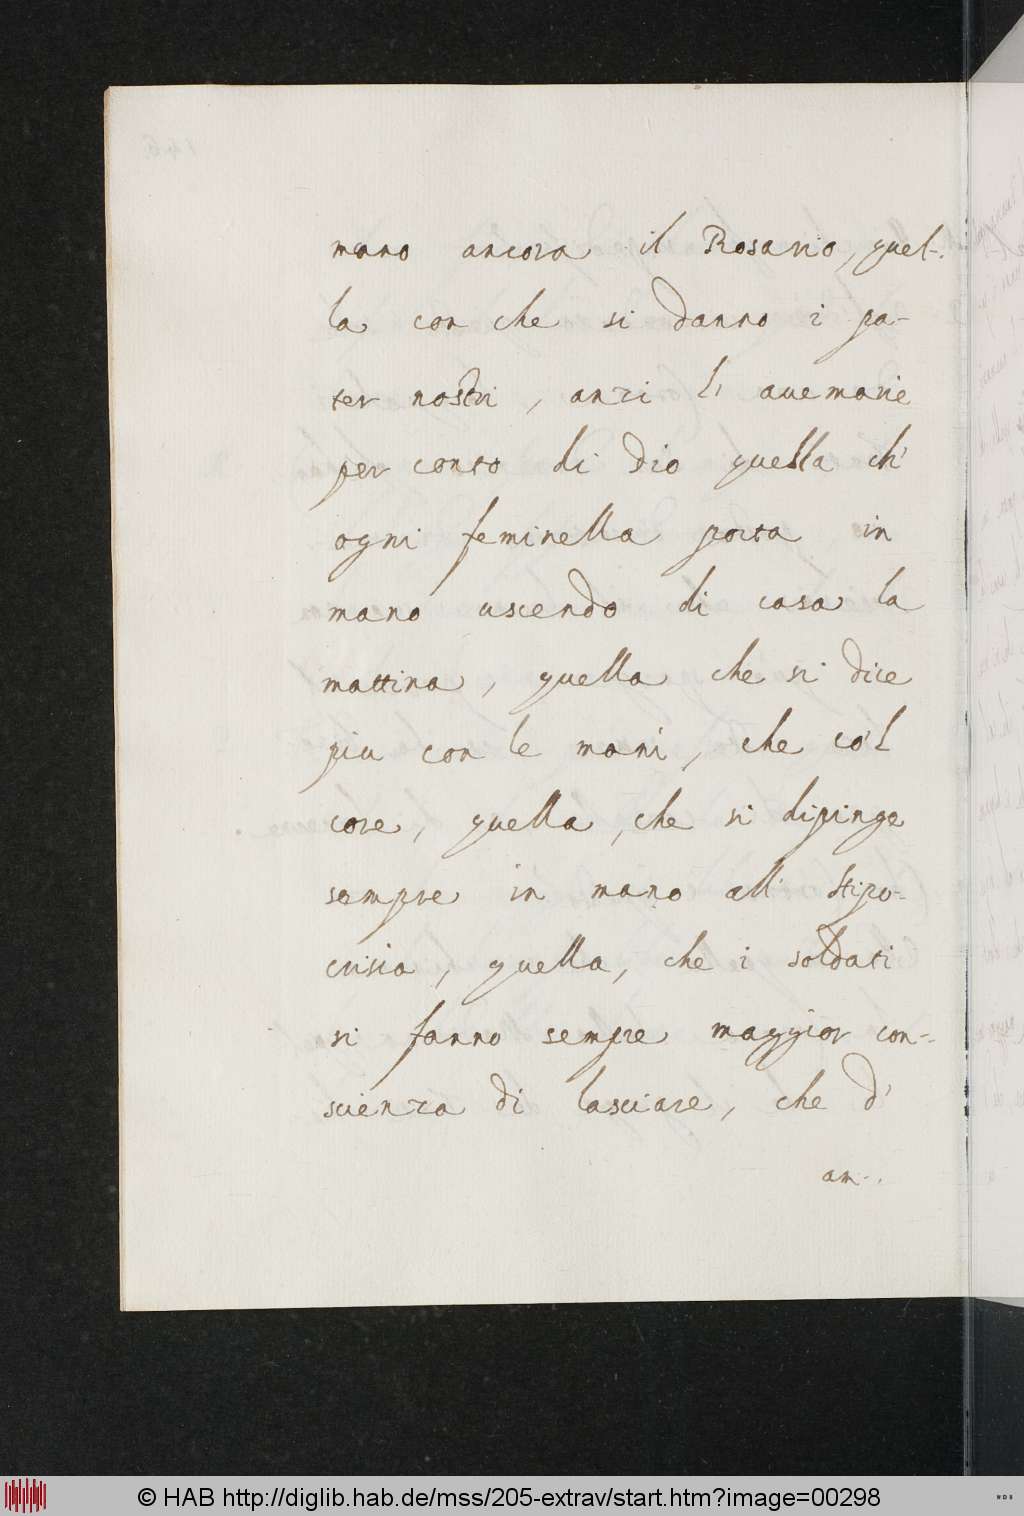 mano ancora il Rosario, quel-
la con che si danno i pa-
ter nostri, anzi li avemarie
per conto di Dio quella ch'
ogni feminella porta in
mano uscendo di casa la
mattina, quella che si dice
piu con le mani, che co'l
core, quella, che si dipinge
sempre in mano all' Hipo-
crisia, quella, che i soldati
si fanno sempre maggior con-
scienza di lasciare, che d'
am-
© HAB http://diglib.hab.de/mss/205-extrav/start.htm?image=00298